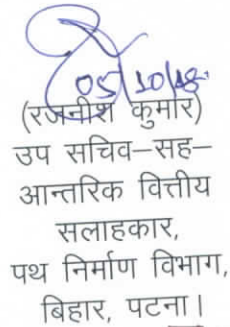 05/10/18.
(रजनीश कुमार)
उप सचिव–सह–
आन्तरिक वित्तीय
सलाहकार,
पथ निर्माण विभाग,
बिहार, पटना।